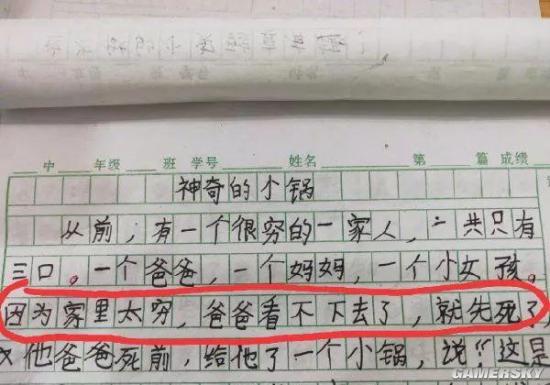 中 年级 班 学号 姓名 第 篇 成绩
神奇的小锅
从前，有一个很穷的一家人，一共只有
三口。一个爸爸，一个妈妈，一个小女孩。
因为家里太穷，爸爸看不下去了，就先死了，
他爸爸死前，给他了一个小锅，说“这是
GAMERSKY